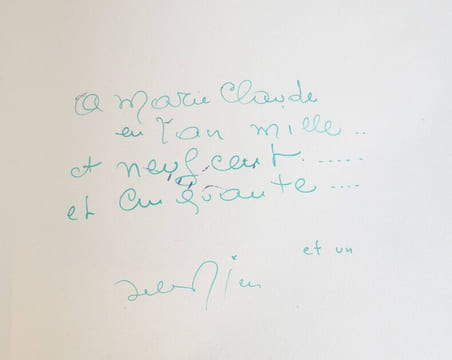 A Marie Claude
en l'an mille ..
et neuf cent. .....
et cinquante ....
et un